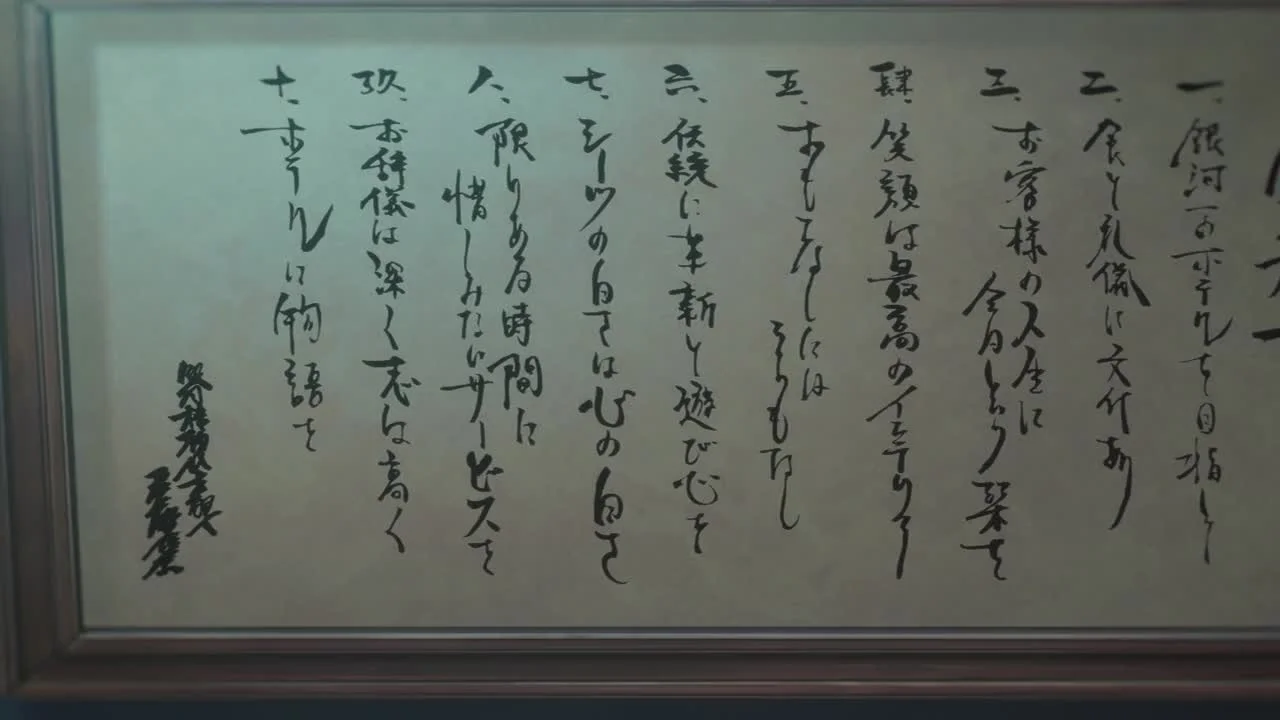 一、銀河一のホテルを目指して
二、食と礼儀に
三、お客様の人生に
今日という栞を
肆、笑顔は最高のインテリア
五、おもてなしには
うらもなし
六、伝統に革新と遊び心を
七、シーツの白さは心の白さ
八、限りある時間に
惜しみないサービスを
玖、お辞儀は深く志は高く
十、ホテルに物語を